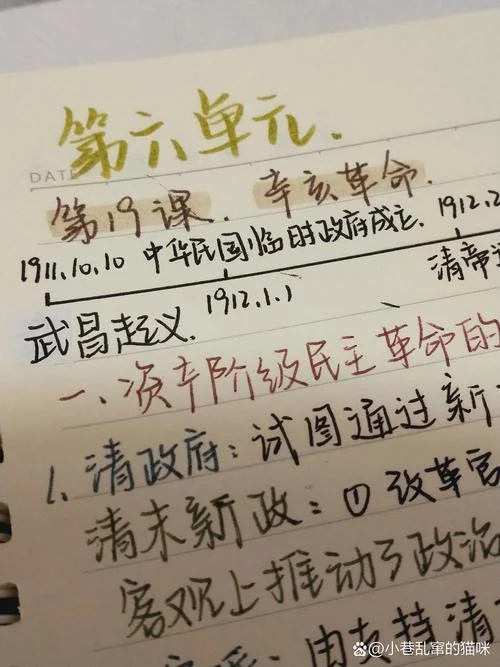 第六单元.
DATE
第19课. 辛亥革命.
1911.10.10 中华民国临时政府成立. 1912.2
1912.1.1 清帝
武昌起义.
一、资产阶级民主革命的
1、清政府:试图通过新
清末新政:①改革官
客观上推动了政治
由支持清
@小巷乱窜的猫咪